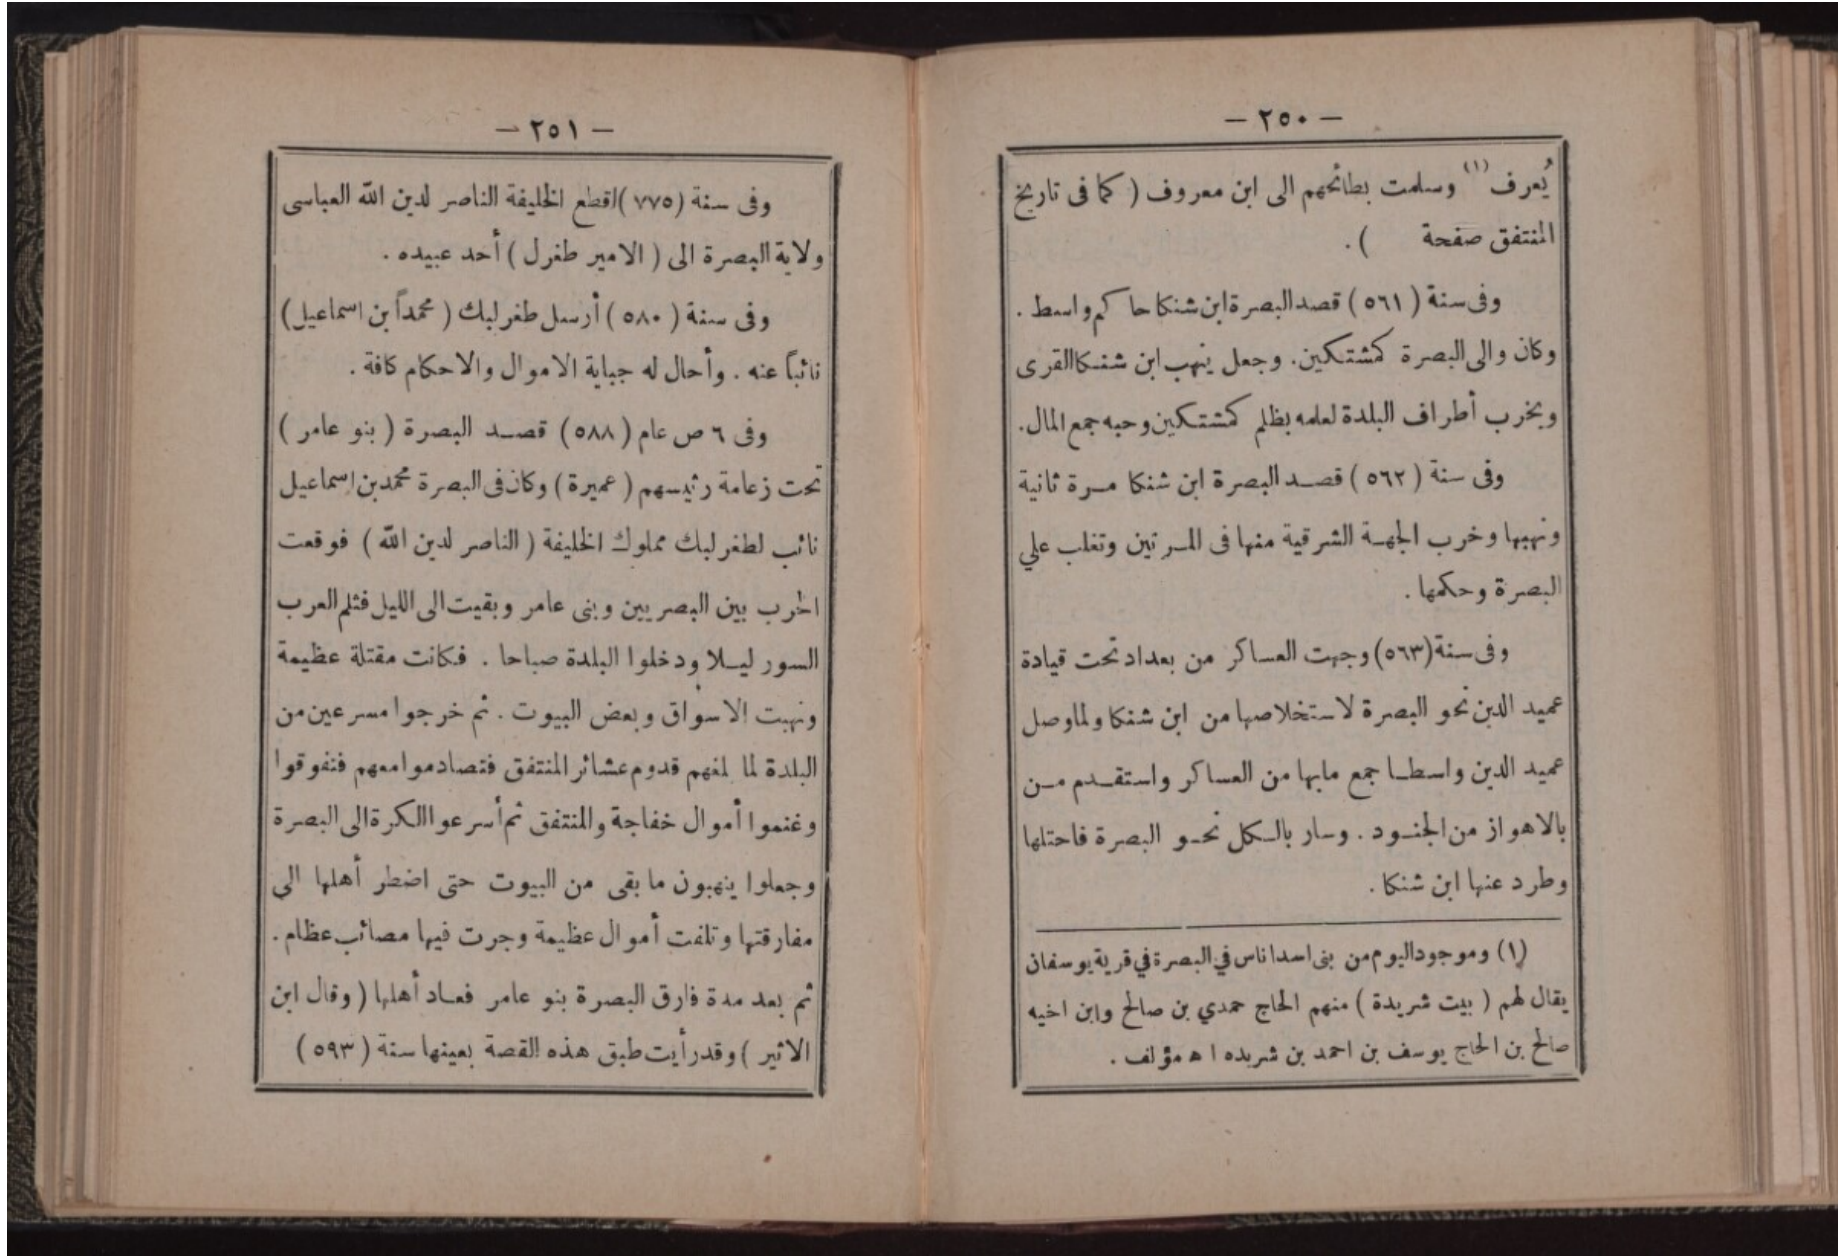 — ٢٥٠ —
يُعرف (١) وسلمت بطائحهم الى ابن معروف ( كما فى تاريخ
المنتفق صفحة ) .
وفى سنة ( ٥٦١ ) قصد البصرة ابن شنكا حاكم واسط .
وكان والى البصرة كمشتكين . وجعل ينهب ابن شنكا القرى
ويخرب أطراف البلدة لعلمه بظلم كمشتكين وحبه جمع المال .
وفى سنة ( ٥٦٢ ) قصد البصرة ابن شنكا مرة ثانية
ونهبها وخرب الجهة الشرقية منها فى المرتين وتغلب علي
البصرة وحكمها .
وفى سنة (٥٦٣) وجهت العساكر من بعداد تحت قيادة
عميد الدين نحو البصرة لاستخلاصها من ابن شنكا ولما وصل
عميد الدين واسطا جمع مابها من العساكر واستقدم من
بالاهواز من الجنود . وسار بالكل نحو البصرة فاحتلها
وطرد عنها ابن شنكا .
(١) وموجود اليوم من بنى اسد اناس في البصرة في قرية يوسفان
يقال لهم ( بيت شريدة ) منهم الحاج حمدي بن صالح وابن اخيه
صالح بن الحاج يوسف بن احمد بن شريده اه مؤلف .
— ٢٥١ —
وفى سنة (٧٧٥) اقطع الخليفة الناصر لدين الله العباسى
ولاية البصرة الى ( الامير طغرل ) أحد عبيده .
وفى سنة ( ٥٨٠ ) أرسل طغرلبك ( محمداً بن اسماعيل )
نائباً عنه . وأحال له جباية الاموال والاحكام كافة .
وفى ٦ ص عام ( ٥٨٨ ) قصد البصرة ( بنو عامر )
تحت زعامة رئيسهم ( عميرة ) وكان فى البصرة محمد بن إسماعيل
نائب لطغرلبك مملوك الخليفة ( الناصر لدين الله ) فوقعت
الحرب بين البصريين وبنى عامر وبقيت الى الليل فثلم العرب
السور ليلا ودخلوا البلدة صباحا . فكانت مقتلة عظيمة
ونهبت الاسواق وبعض البيوت . ثم خرجوا مسرعين من
البلدة لما لغهم قدوم عشائر المنتفق فتصادموا معهم فتفوقوا
وغنموا أموال خفاجة والمنتفق ثم أسرعوا الكرة الى البصرة
وجعلوا ينهبون ما بقى من البيوت حتى اضطر أهلها الى
مفارقتها وتلفت أموال عظيمة وجرت فيها مصائب عظام .
ثم بعد مدة فارق البصرة بنو عامر فعاد أهلها ( وقال ابن
الاثير ) وقد رأيت طبق هذه القصة بعينها سنة ( ٥٩٣ )